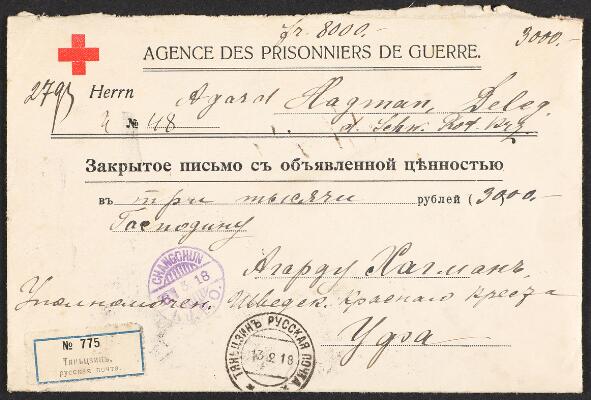 fr. 8000.-
3000.-
AGENCE DES PRISONNIERS DE GUERRE.
2795
Herrn Agard Hagman, Deleg.
№ 48 d. Schw. Rot.
Закрытое письмо съ объявленной цѣнностью
въ три тысячи рублей (3000.-
Господину
CHANGCHUN
18
I.J.P.O.
Агарду Хагманъ
Уполномочен. Шведск. Краснаго Креста
Уфа
№ 775
Тяньцзинъ.
русская почта.
ТЯНЬЦЗИНЪ РУССКАЯ ПОЧТА
13 2 18